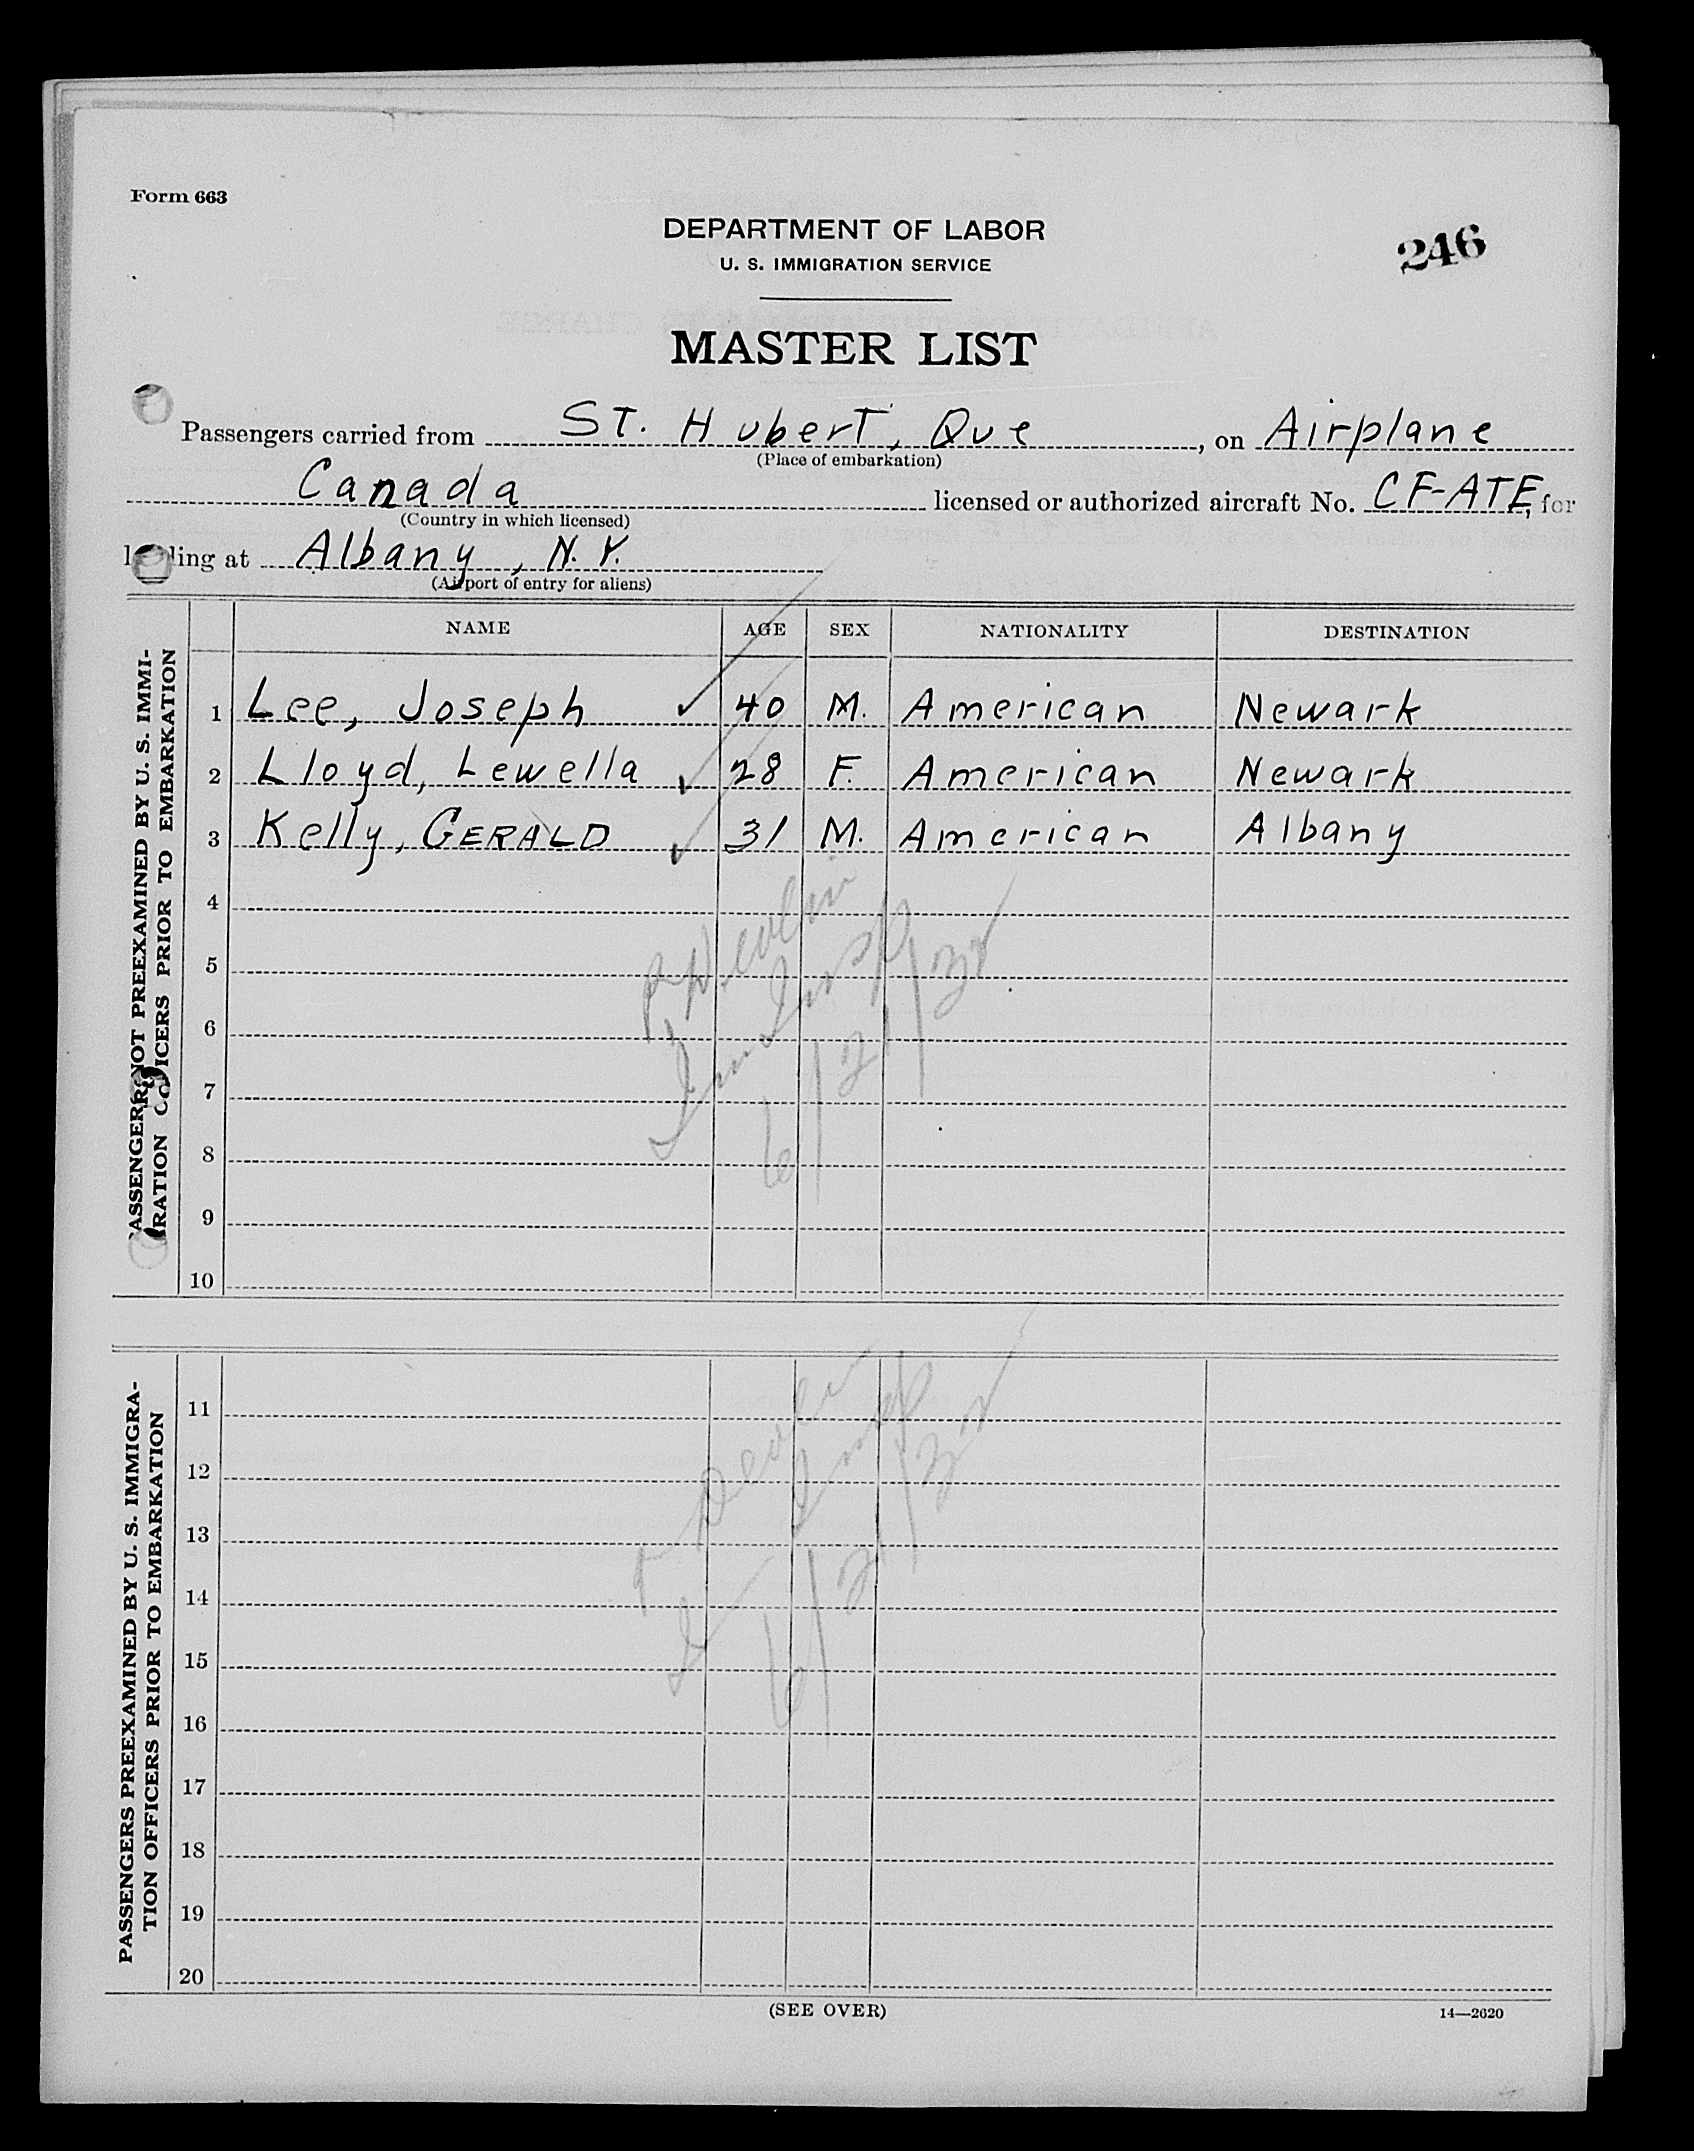 Form 663
DEPARTMENT OF LABOR
U. S. IMMIGRATION SERVICE
246
MASTER LIST
Passengers carried from ST. Hubert, Que, on Airplane
(Place of embarkation)
Canada licensed or authorized aircraft No. CF-ATE, for
(Country in which licensed)
l ing at Albany, N. Y.
(Airport of entry for aliens)
NAME AGE SEX NATIONALITY DESTINATION
PASSENGERS NOT PREEXAMINED BY U. S. IMMI-
GRATION OFFICERS PRIOR TO EMBARKATION
1 Lee, Joseph ✓ 40 M. American Newark
2 Lloyd, Lewella ✓ 28 F. American Newark
3 Kelly, GERALD ✓ 31 M. American Albany
4
5
6
7
8
9
10
Devlin
Imm Insp
6/21/32
PASSENGERS PREEXAMINED BY U. S. IMMIGRA-
TION OFFICERS PRIOR TO EMBARKATION
11
12
13
14
15
16
17
18
19
20
Devlin
Insp
6/21/32
(SEE OVER)
14—2620